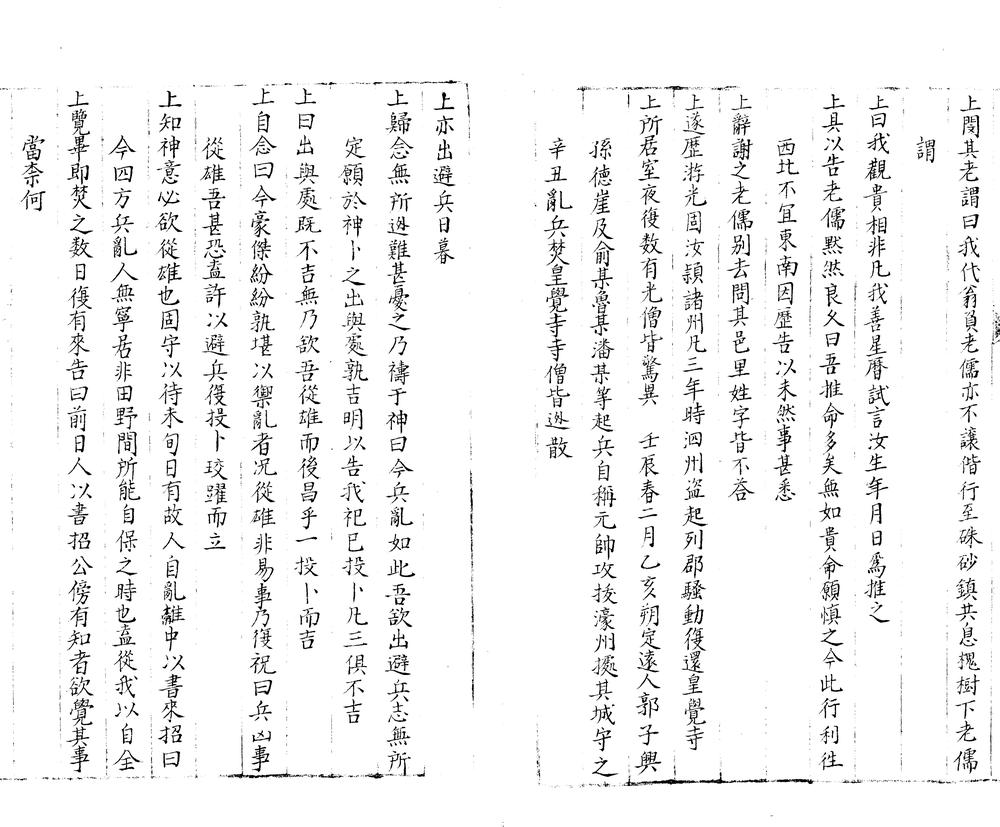 上閔其老謂曰我代翁負老儒亦不讓偕行至硃砂鎮共息槐樹下老儒
謂
上曰我觀貴相非凡我善星曆試言汝生年月日為推之
上具以告老儒默然良久曰吾推命多矣無如貴命願慎之今此行利往
西北不宜東南因歷告以未然事甚悉
上辭謝之老儒别去問其邑里姓字皆不荅
上遂歷游光固汝潁諸州凡三年時泗州盜起列郡騷動復還皇覺寺
上所居室夜復数有光僧皆驚異 壬辰春二月乙亥朔定遠人郭子興
孫德崖及俞某魯某潘某等起兵自稱元帥攻拔濠州據其城守之
辛丑亂兵焚皇覺寺寺僧皆迯散
上亦出避兵日暮
上歸念無所迯難甚憂之乃禱于神曰今兵亂如此吾欲出避兵志無所
定願於神卜之出與處孰吉明以告我祀已投卜凡三俱不吉
上曰出與處既不吉無乃欲吾從雄而後昌乎一投卜而吉
上自念曰今豪傑紛紛孰堪以禦亂者况從雄非易事乃復祝曰兵凶事
從雄吾甚恐盍許以避兵復投卜珓躍而立
上知神意必欲從雄也固守以待未旬日有故人自亂雄中以書來招曰
今四方兵亂人無寧居非田野間所能自保之時也盍從我以自全
上覽畢即焚之数日復有來告曰前日人以書招公傍有知者欲覺其事
當柰何